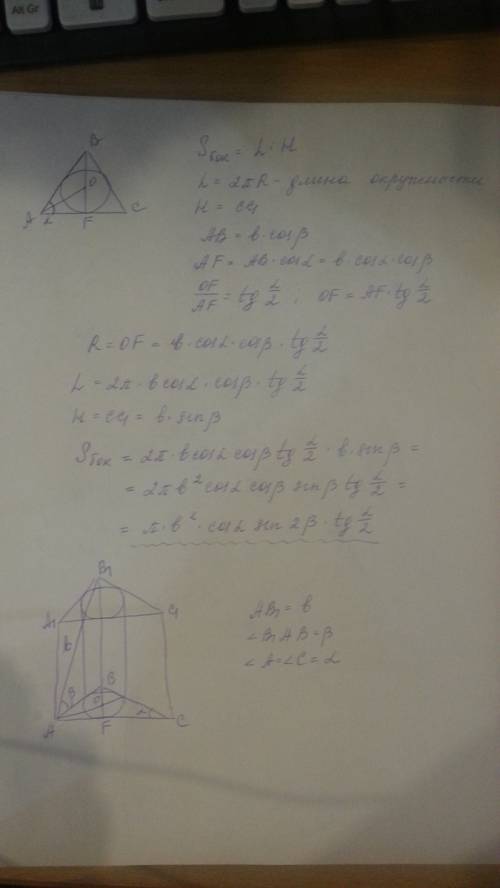 Alt Gr
B
O
A
α
F
C
Sбок = L·H
L = 2πR - длина окружности
H = CC₁
AB = b·cosβ
AF = AB·cosα = b·cosα·cosβ
OF/AF = tg α/2 ; OF = AF·tg α/2
R = OF = b·cosα·cosβ·tg α/2
L = 2π·b cosα·cosβ·tg α/2
H = CC₁ = b·sinβ
Sбок = 2π·b cosα cosβ tg α/2 · b·sinβ =
= 2πb² cosα cosβ sinβ tg α/2 =
= π·b²·cosα sin2β·tg α/2
B₁
A₁
C₁
b
B
β
O
α
A
F
C
AB₁ = b
∠B₁AB = β
∠A = ∠C = α